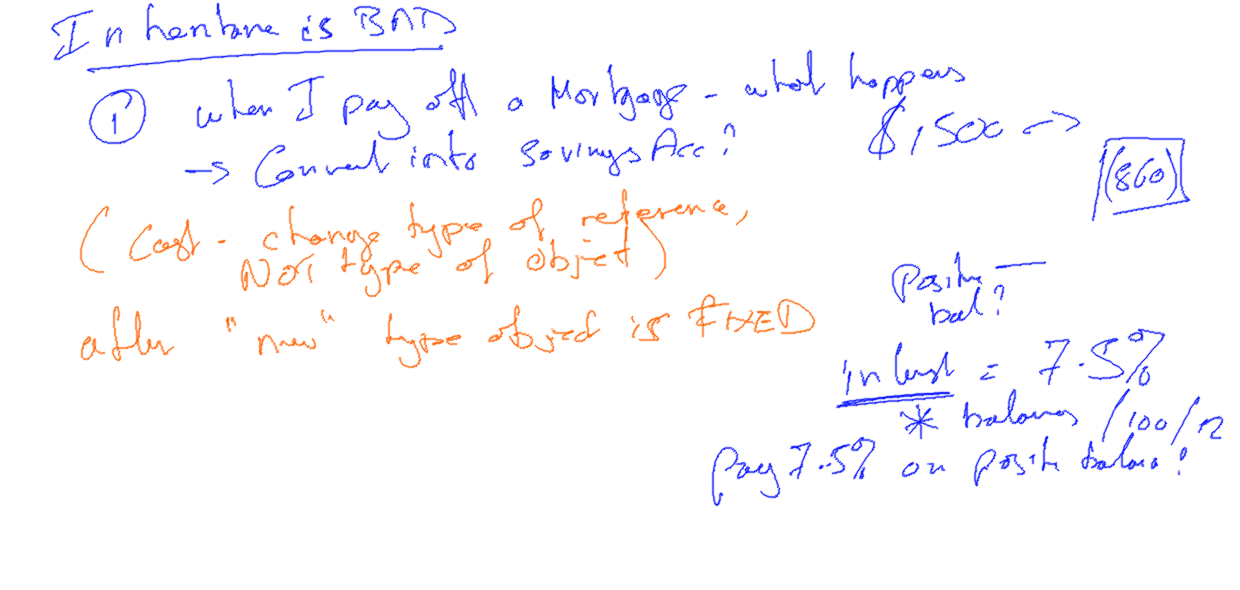 Inheritance is BAD
① when I pay off a Mortgage - what happens
→ Convert into Savings Acc?
$1,500 →
(860)
(Cast - change type of reference,
NOT type of object)
after "new" type object is FIXED
Positive
bal?
interest = 7.5%
* balance /100/12
pay 7.5% on positive balance?